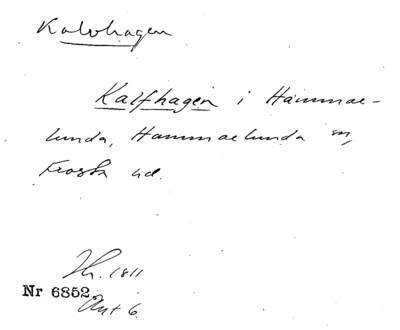 Kalvhagen
Kalfhagen i Hammar-
lunda, Hammarlunda sn,
Frosta hd.
Th. 1811
Nr 6852
Akt 6.